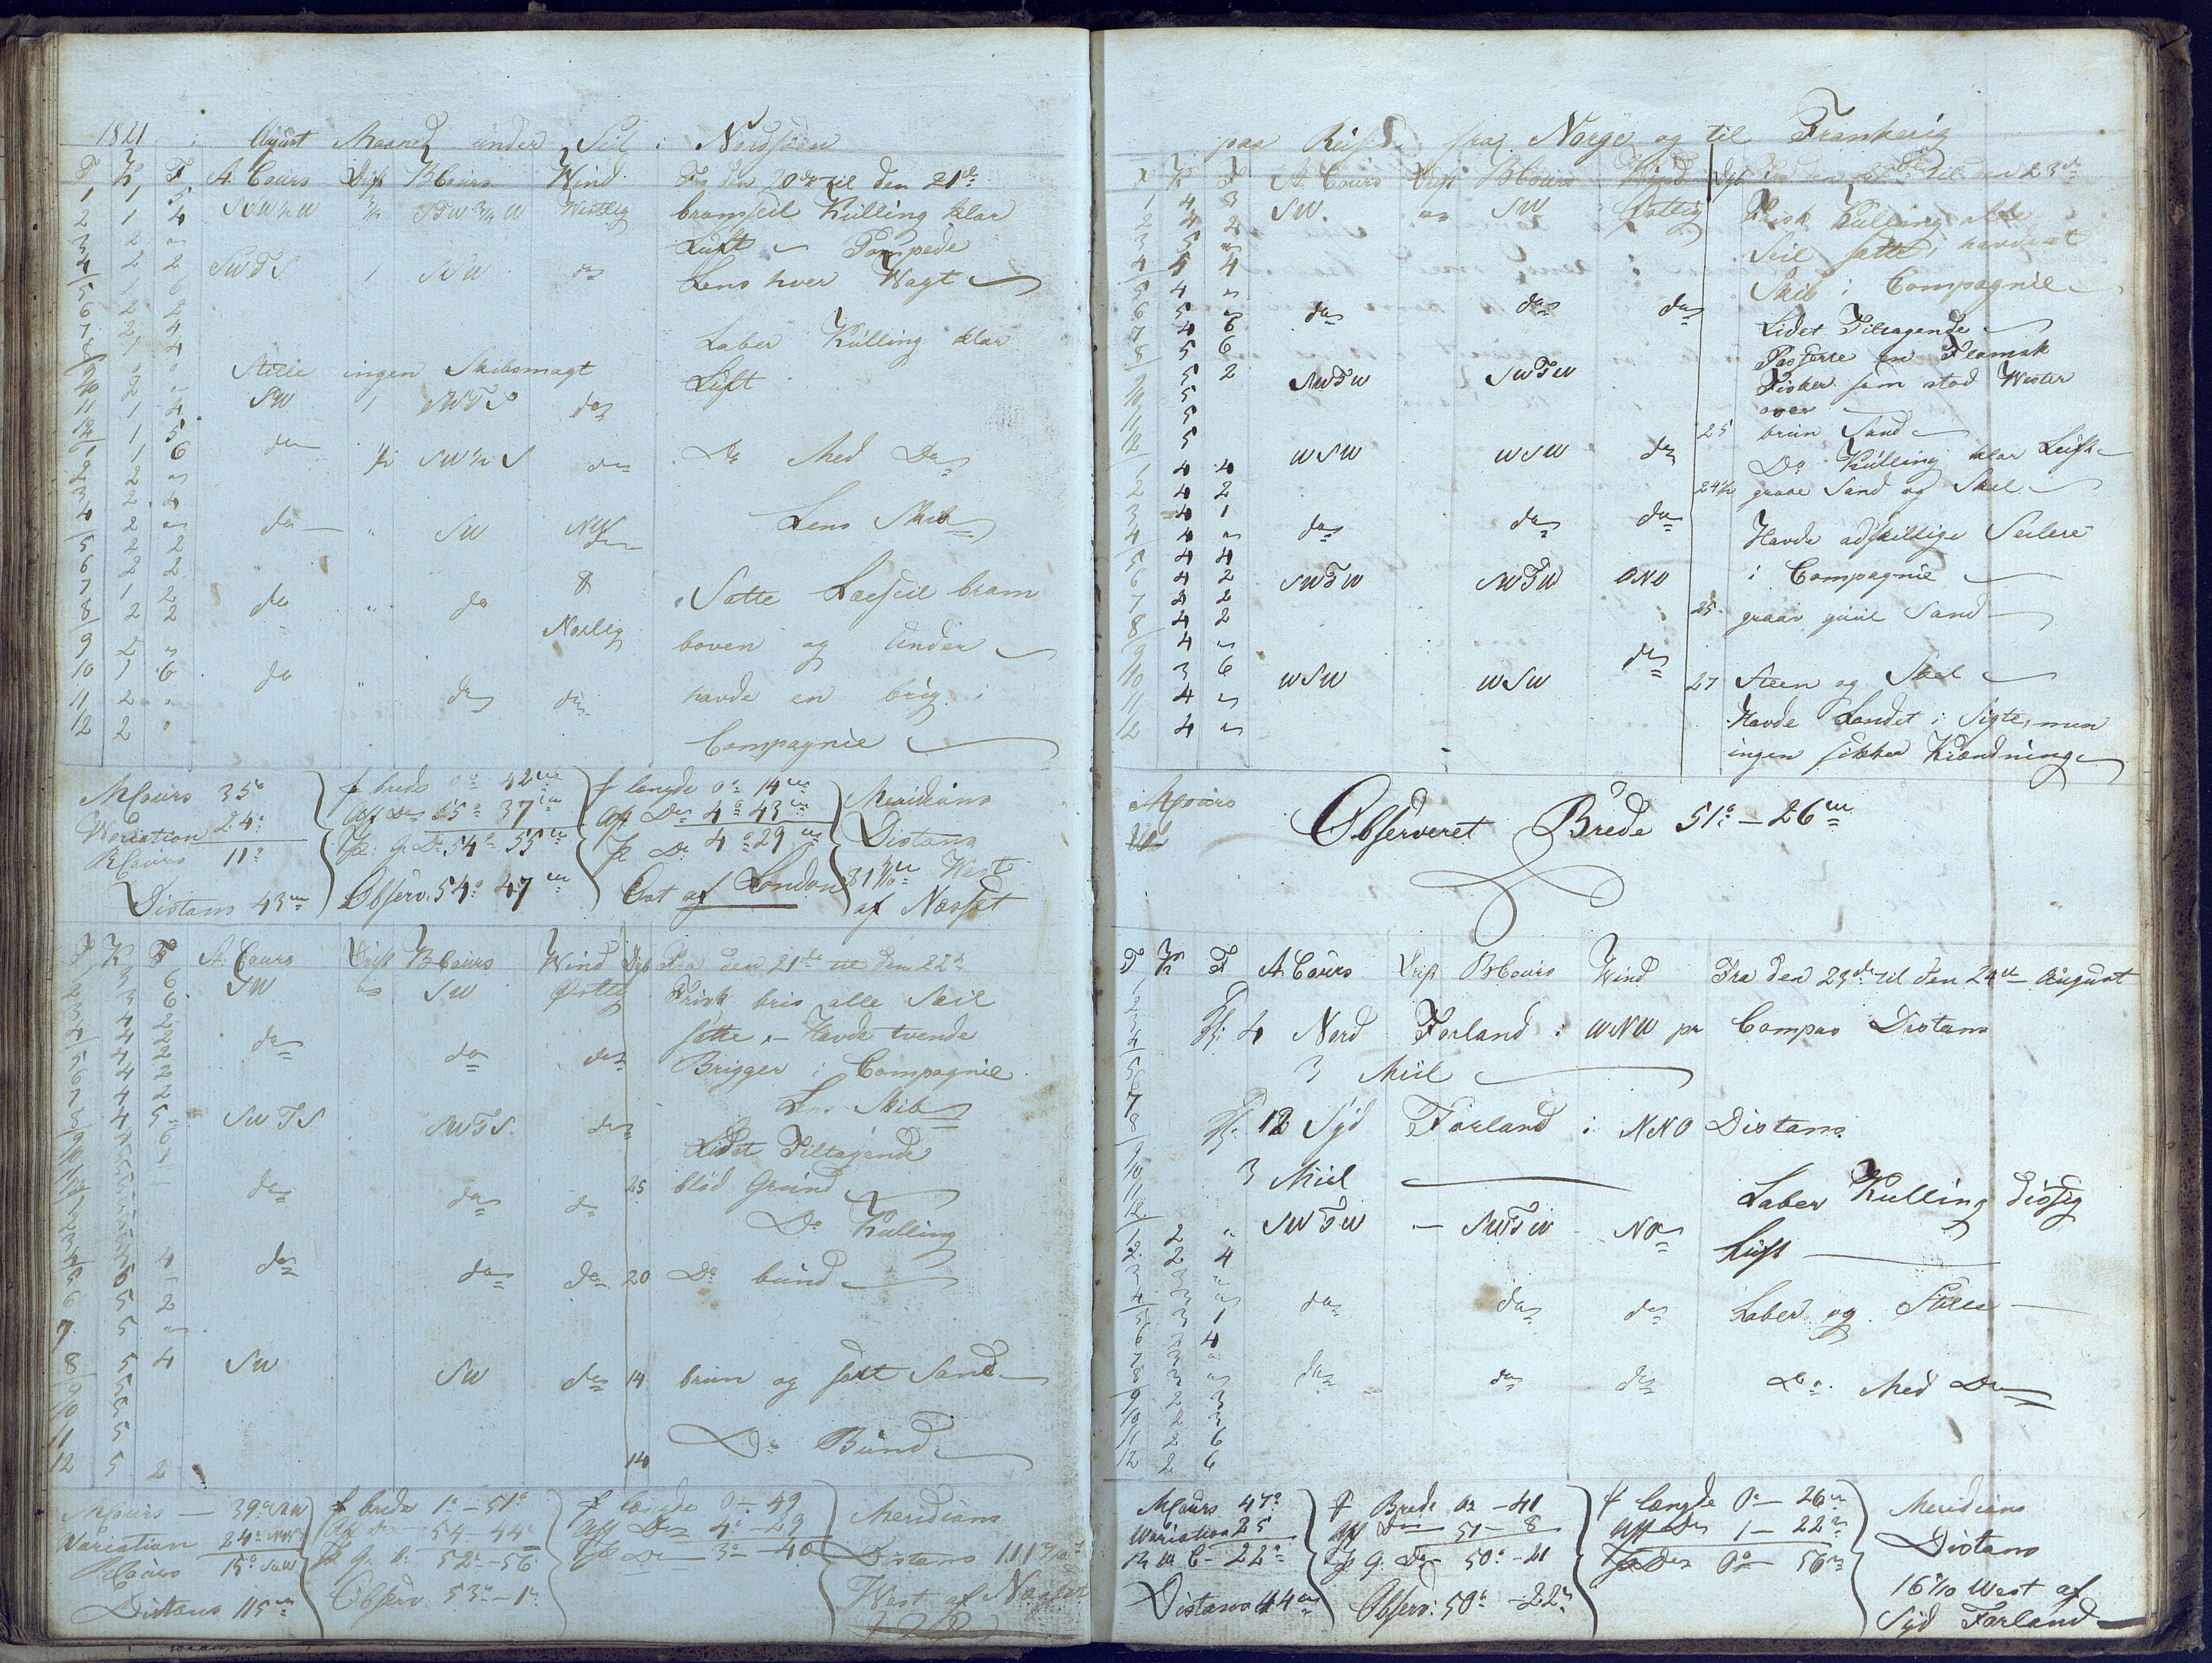 1821 i August Maaned under Seil i Nordsøen
T K F A. Cours Drift B Cours Wind Fra den 20de til den 21de
1 1 5
2 1 4 Westlig bramseil Kulling klar
3 2 " Luft - Pompede
4 2 2 SWTS 1 SSW do Lens hver Wagt
5 1 6
6 2 2
7 2 4 Laber Kulling klar
8 1 4 Stille ingen Skibsmagt Luft
9 " "
10 2 " SW 1 SWTS do
11 1 4
12 1 5
1 1 6 do ½ SW½S do Do Med Do
2 2 "
3 2 4
4 2 " do " SW NW Lens Skib
5 2 2
6 2 2
7 1 2 Satte Læseil bram
8 2 2 do " do Norlig
9 2 " boven og under
10 1 6 do " do do havde en brig i
11 2 "
12 2 " Compagnie
MCours 35° f brede 0° 42m f længde 0° 14m Meridians
Wariation 24° Aff Do 55° 37m Aff Do 4° 43m Distans
RCours 11° P: g. D. 54° 55m P Do 4° 29m 81 West
Distans 43m Observ. 54° 47m Ost af London af Næsset
T K F A. Cours Drift B Cours Wind Dyb Fra den 21de til den 22d
1 3 6 SW " SW Østlig Frisk bris alle Seil
2 3 6
3 4 2 satte - Havde tvende
4 4 2 do do do Brigger i Compagnie
5 4 2
6 4 2
7 4 2 Lens Skib
8 4 5 SWTS SWTS do Lidet Tiltagende
do do do 25 blød Grund
Do Kulling
4 5 4 do do do 20 Do bund
5 5 -
6 5 2
7 5 "
8 5 4 SW SW do 14 brun og sort Sand
9 5
10 5
11 5 Do Bund
12 5 2 14
MCours — 39° f brede 1° - 51° f længde 0 - 49 Meridians
Wariation 24° Aff Do 54 - 44 Aff Do 4° - 29 Distans 111
RCours 15° P g. D. 52° - 56 P Do 3° - 40 West af Næsset
Distans 115m Observ 53° - 1m
paa Reisen fra Norge og til Frankerig
T K F A. Cours Drift B Cours Wind Dyb til den 23d
1 4 3 SW " SW Østlig Frisk Kulling alle
2 4 2 Seil satte, havde et
3 5 "
4 4 4 Skib i Compagnie
5 4 "
6 5 " do do do Lidet Tiltagende
7 4 6 Passerte en Flamsk
8 5 6 Fisker som stod Wester
9 5 2 SWTW SWTW over
10 5
11 5 25 brun Sand
12 5 WSW WSW do Do Kulling klar Luft
1 4 4
2 4 2 24½ graae Sand og Skel
3 4 1
4 4 " do do do Havde adskillige Seilere
5 4 4
6 4 2 SWTW SWTW ONO i Compagnie
7 4 2 25 graav guul Sand
8 4 2
9 4 " do
10 3 6 WSW WSW 27 Steen og Skel
11 4 " Havde Landet i Sigte, men
12 4 " ingen sikker Kiendning
MCours
Observeret Brede 51° - 26m
T K F A Cours Drift B Cours Wind Fra den 23de til den 24de August
1
2
3 Kl: 4 Nord Forland i WNW pr Compas Distans
4
5 3 Miil
6
7
8 Kl: 12 Syd Forland i NNO Distans
9
10 3 Miil
11 Laber Kulling disig
12
1 2 " SWTW — SWTW NO Luft
2 2 4
3 3 "
4 3 " do do do Laber og Stille
5 3 1
6 3 4
7 3 "
8 3 " do do do Do Med Do
9 2 3
10 2 3
11 2 6
12 2 6
MCours 47° f Brede 0° - 41 f længde 0° - 26m Meridians
Wariation 25 Aff Do 51 - 8 Aff Do 1 - 22m Distans
22° P g. Do 50° - 21 P Do 0° - 56m 16 West af
Distans 44m Observ: 50° - 22m Syd Forland